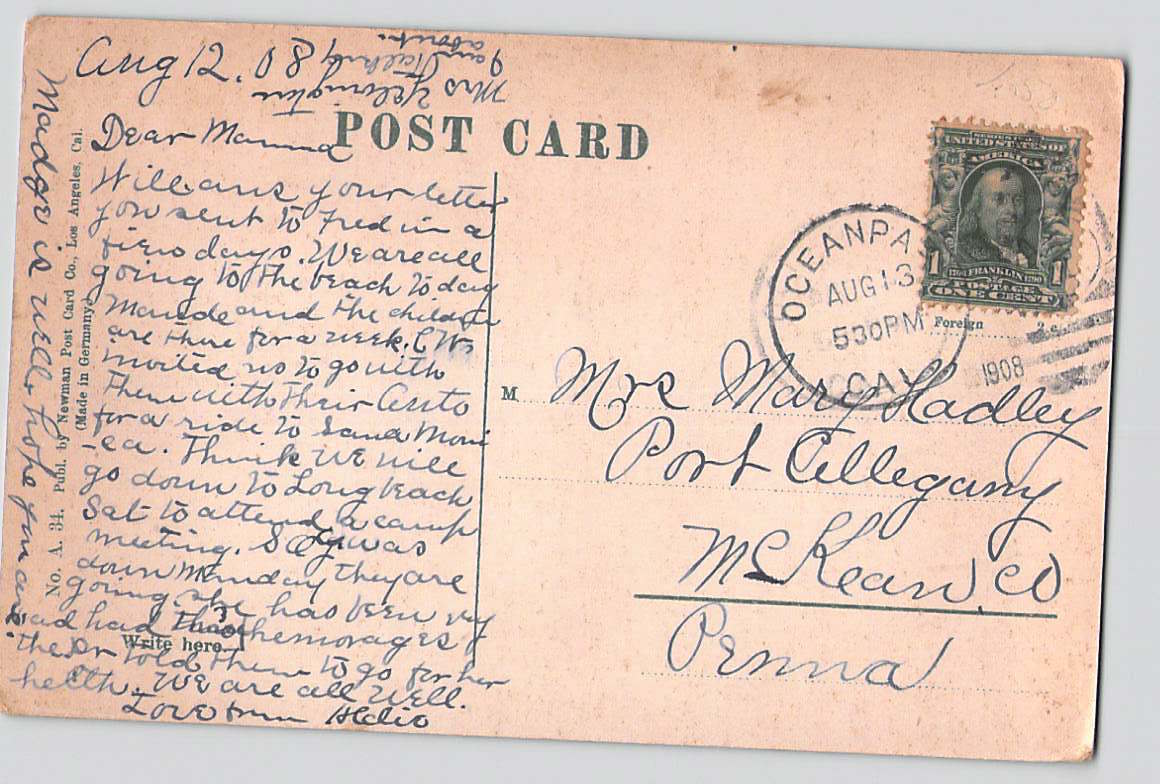 Aug 12. 08
Mrs Yelvington
am talking
about.
POST CARD
Dear Mamma
Will ans your letter
you sent to Fred in a
few days. We are all
going to the beach to day
Maude and the children
are there for a week. C Ws
invited us to go with
them with their Auto
for a ride to Santa Moni
-ca. Think we will
go down to Long beach
Sat to attend a camp
meeting. S was
down Monday they are
going. she has been very
bad had 3 hemorages
the Dr told them to go for her
health. We are all well.
Love from
Madge is well hope you are
No. A. 34. Publ. by Newman Post Card Co., Los Angeles, Cal.
(Made in Germany)
Write here
SERIES 1902
UNITED STATES OF
AMERICA
1 1706 FRANKLIN 1790 1
POSTAGE
ONE CENT
OCEANPA
AUG 13
530 PM
CAL
1908
Foreign 2 c
M Mrs Mary Hadley
Port Allegany
McKean Co
Penna